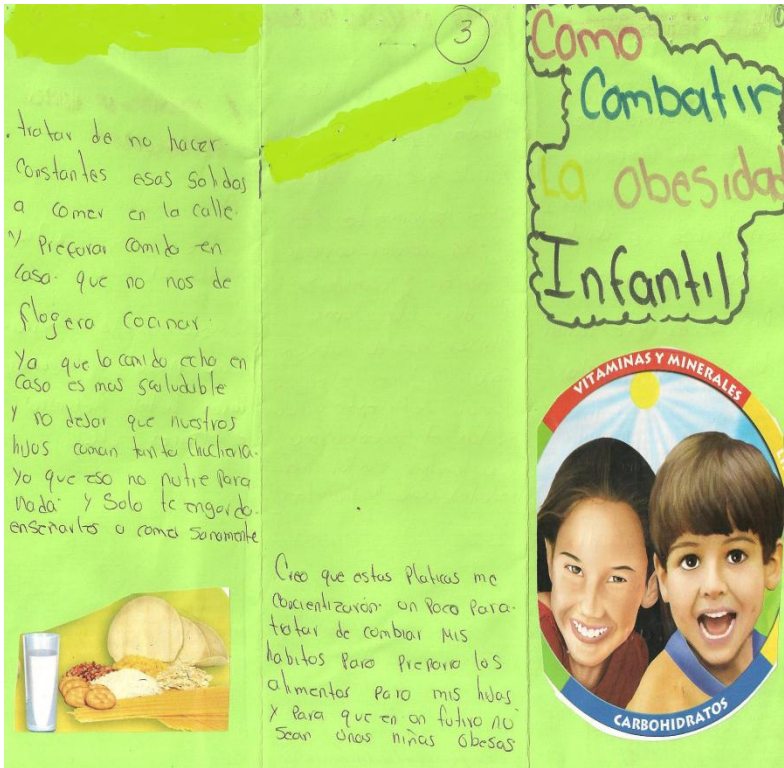 . tratar de no hacer
Constantes esas salidas
a comer en la calle.
Y Preparar comida en
casa. que no nos de
flogera cocinar.
Ya que la comida echa en
casa es mas saludable
Y no dejar que nuestros
hijos coman tanta Chuchara.
Ya que eso no nutre Para
nada. Y Solo te engorda.
enseñarlos a comer Sanamente
3
Creo que estas Platicas me
Concientizarón un Poco Para.
tratar de cambiar Mis
habitos Para Preparar los
alimentos Para mis hijas
Y Para que en un futuro no
Sean unas niñas Obesas
Como
Combatir
La obesidad
Infantil
VITAMINAS Y MINERALES
CARBOHIDRATOS